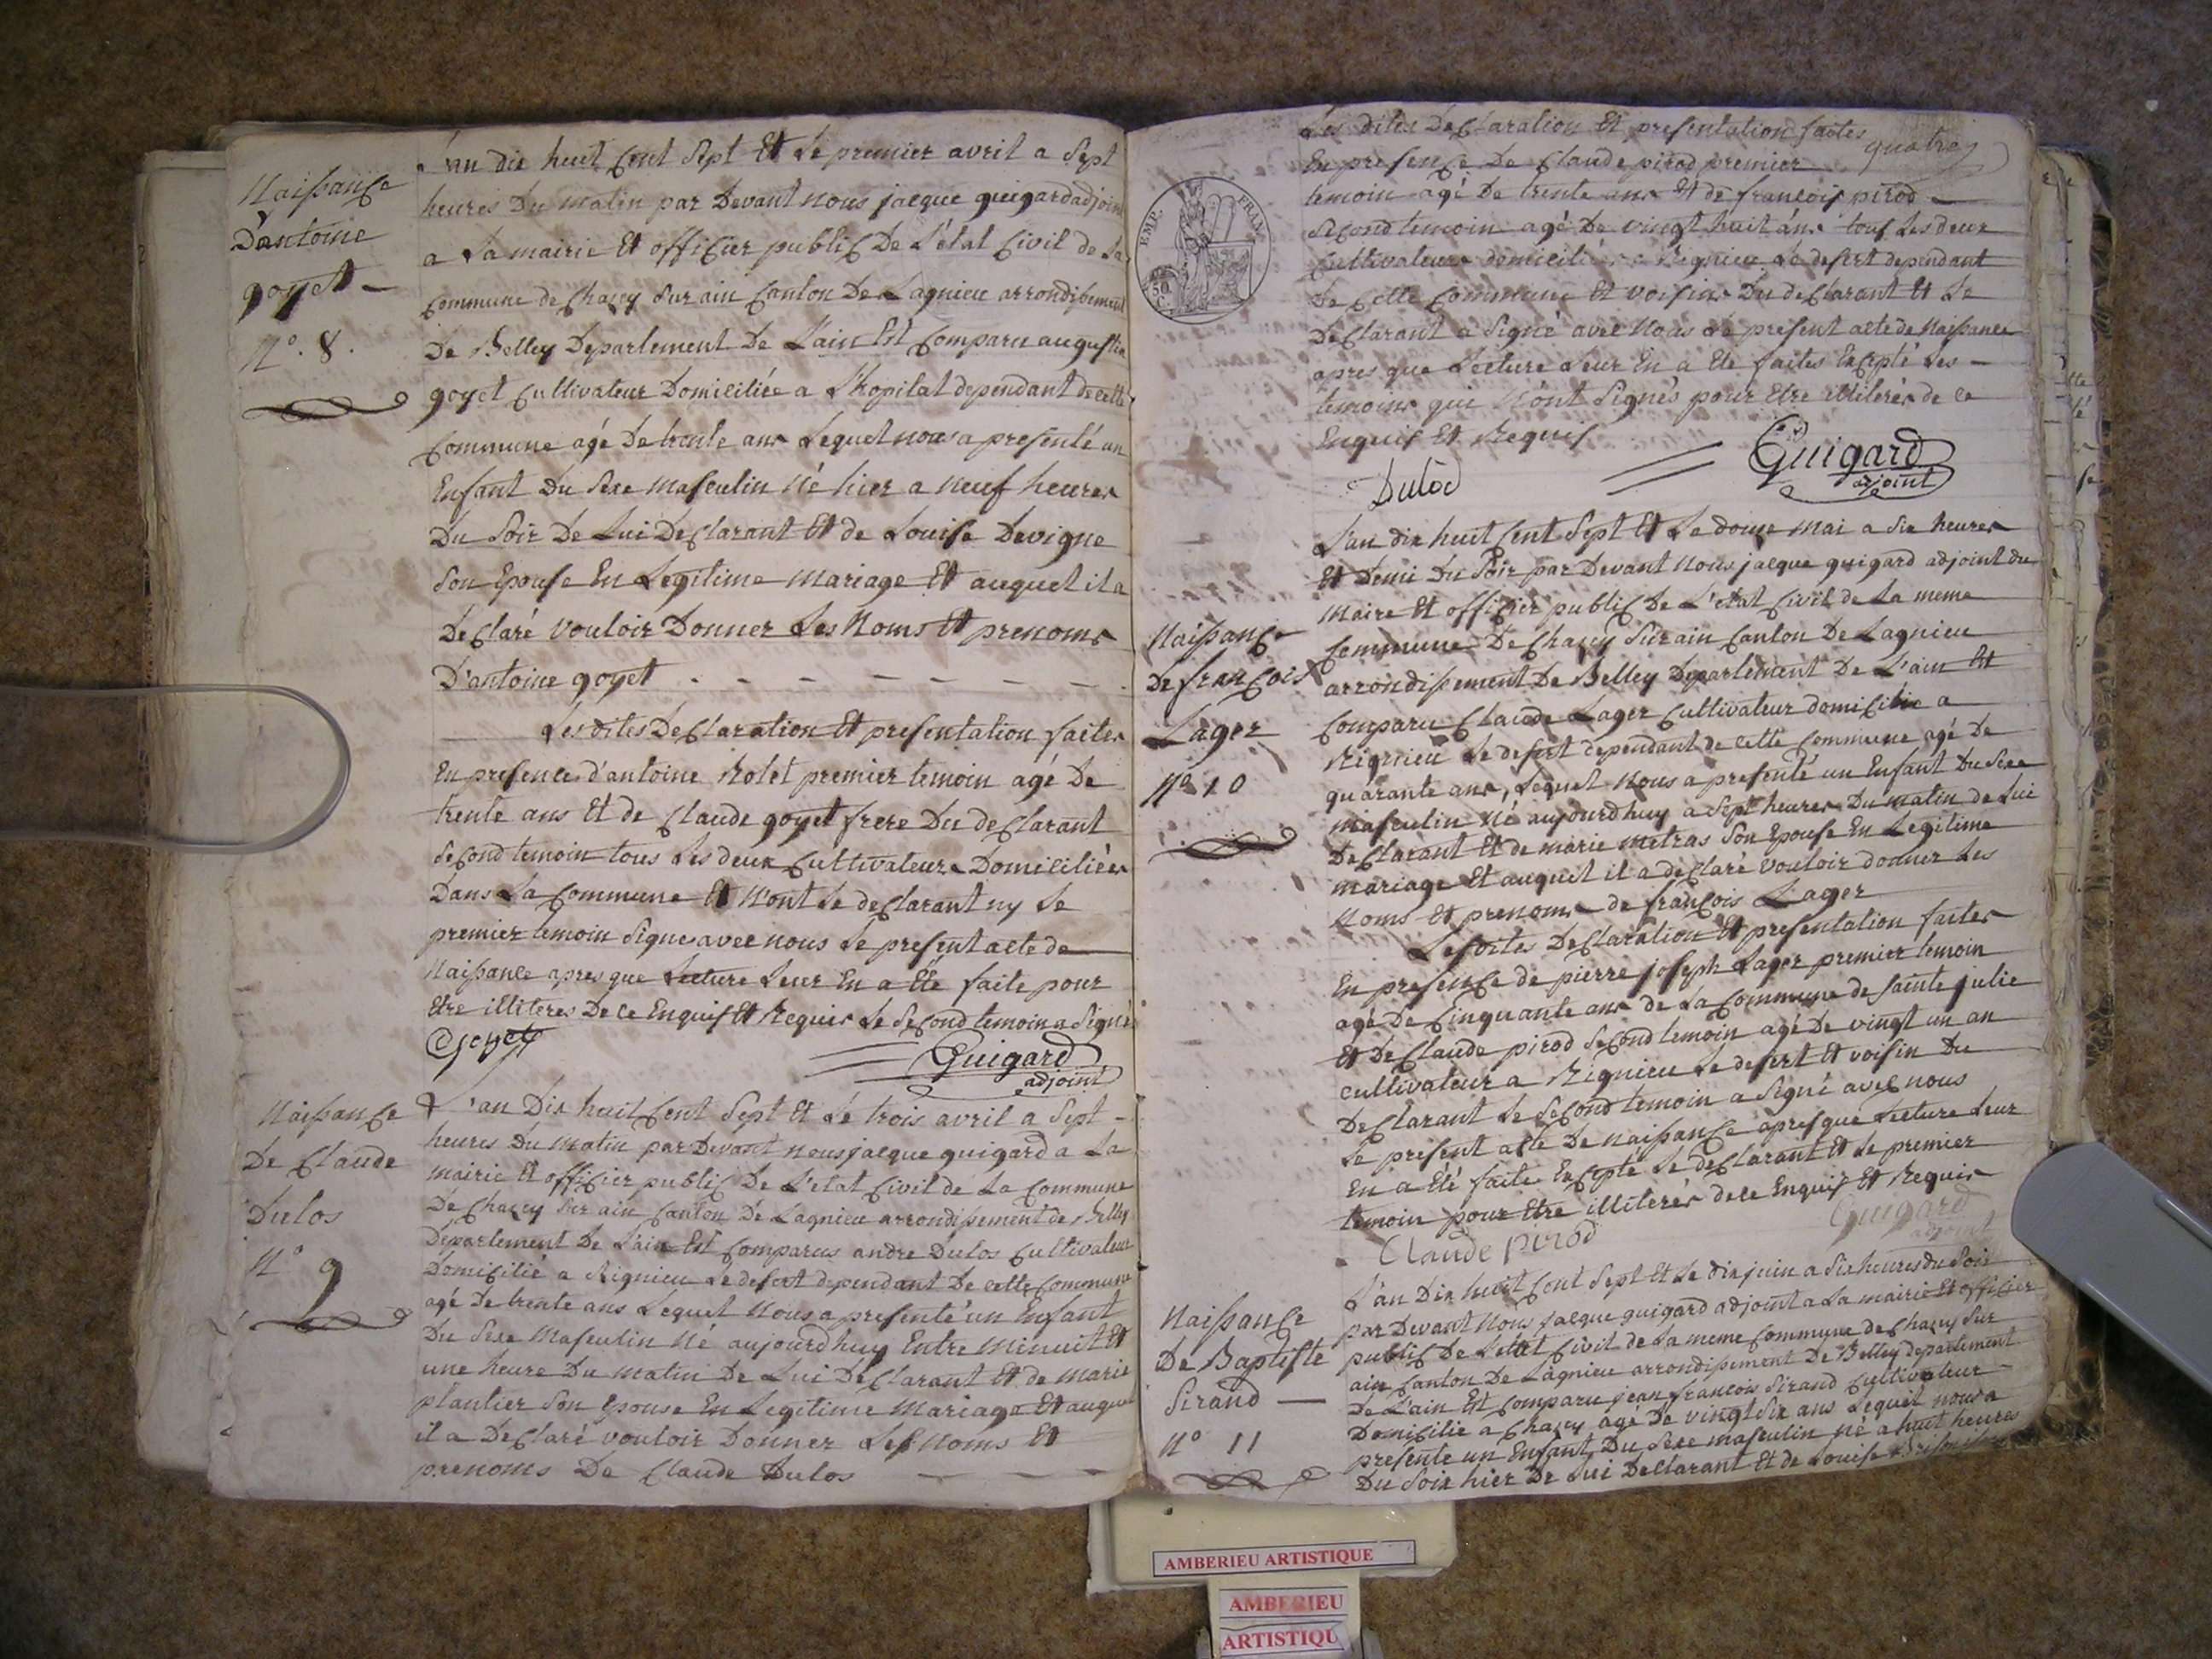 Naissance
D'antoine
goyet
N° 8
L'an dix huit Cent Sept Et Le premier avril a Sept
heures Du matin par Devant nous jacque guigard adjoint
a La mairie Et officier public De L'état Civil de La
Commune de Chazey Sur ain Canton De Lagnieu arrondissement
De Belley Departement De L'ain Est Comparu augustin
goyet Cultivateur Domiciliée a L'hopital dependant de cette
Commune agé De trente ans Lequel nous a presenté un
Enfant Du Sexe Masculin Né hier a neuf heures
Du Soir De Lui Declarant Et de Louise Devigne
Son Epouse En Legitime Mariage Et auquel il a
Declaré Vouloir Donner Les Noms Et prenoms
D'antoine goyet
Les dites Declaration Et presentation faites
En presence d'antoine Rolet premier temoin agé De
trente ans Et de Claude goyet frere Du declarant
Second temoin tous Les deux Cultivateurs Domiciliées
Dans La Commune Et N'ont Le declarant ny Le
premier temoin Signe avec nous Le present acte de
Naissance apres que Lecture Leur En a Eté faite pour
Etre illiteres De ce Enquis Et Requis Le Second temoin a Signé
Goyet
Guigard
adjoint
Naissance
De Claude
Dulos
N° 9
L'an Dix huit Cent Sept Et Le trois avril a Sept
heures Du Matin par Devant nous jacque guigard a La
mairie Et officier public De L'etat Civil de La Commune
De Chazey Sur ain Canton De Lagnieu arrondissement de Belley
Departement De L'ain Est Comparus andre Dulos Cultivateur
Domicilié a Rignieu Le desert dependant De cette Commune
agé De trente ans Lequel Nous a presenté un Enfant
Du Sexe Masculin Né aujourdhuy Entre Minuit Et
une heure Du Matin De Lui Declarant Et de Marie
plantier Son Epouse En Legitime Mariage Et auquel
il a Declaré vouloir Donner Les Noms Et
prenoms De Claude Dulos
quatre
Les dites Declaration Et presentation faites
En presence De Claude pirod premier
temoin agé De trente ans Et de francois pirod
Second temoin agé De vingt huit ans tous Les deux
Cultivateurs domiciliés a Rignieu Le desert dependant
De Cette Commune Et voisins Du declarant Et Le
Declarant a Signé avec Nous Le present acte de Naissance
apres que Lecture Leur En a Ete faites Excepté Les
temoins qui N'ont Signés pour Etre illiterés de ce
Enquis Et Requis
EMP. FRAN.
50 C.
Dulod
Guigard
adjoint
Naissance
De francois
Lager
N° 10
L'an dix huit Cent Sept Et Le douze Mai a Six heures
Et Demi Du Soir par Devant Nous jacque guigard adjoint du
Maire Et officier public De L'etat Civil de La meme
Commune De Chazey Sur ain Canton De Lagnieu
arrondissement De Belley Departement De L'ain Et
Comparu Claude Lager Cultivateur domicilié a
Rignieu Le desert dependant de cette Commune agé De
quarante ans, Lequel Nous a presenté un Enfant Du Sexe
Masculin Né aujourdhuy a Sept heures Du Matin de Lui
Declarant Et de marie metras Son Epouse En Legitime
mariage Et auquel il a declaré vouloir donner Les
Noms Et prenoms de francois Lager
Les dites Declaration Et presentation faites
En presence de pierre joseph Lager premier temoin
agé De Cinquante ans de La Commune de Sainte julie
Et De Claude pirod Second temoin agé De vingt un an
cultivateur a Rignieu Le desert Et voisin Du
Declarant Le Second temoin a Signé avec nous
Le present acte De Naissance apres que Lecture Leur
En a Eté faite Excepté Le declarant Et Le premier
temoin pour Etre illiterés de ce Enquis Et Requis
Claude pirod
Guigard
adjoint
Naissance
De Baptiste
Sirand
N° 11
L'an Dix huit Cent Sept Et Le dix juin a Six heures du Soir
par Devant Nous jacque guigard adjoint a La mairie Et officier
public De Letat Civil de La meme Commune de Chazey Sur
ain Canton De Lagnieu arrondissement De Belley departement
De L'ain Est Comparu jean francois Sirand Cultivateur
Domicilie a Chazey agé De vingt Six ans Lequel nous a
presente un Enfant Du Sexe masculin Né a huit heures
Du Soir hier De Lui Declarant Et de Louise
AMBERIEU ARTISTIQUE
AMBERIEU
ARTISTIQU